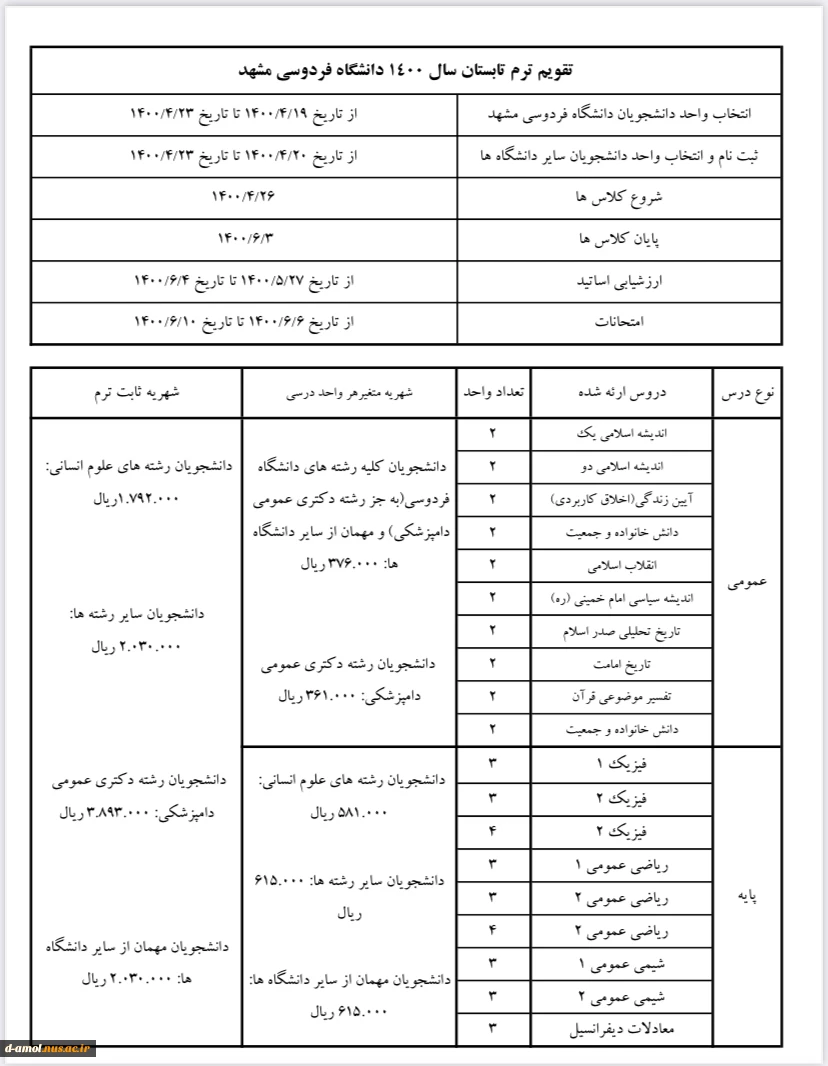 تقویم ترم تابستان سال ۱۴۰۰ دانشگاه فردوسی مشهد
انتخاب واحد دانشجویان دانشگاه فردوسی مشهد	از تاریخ ۱۴۰۰/۴/۱۹ تا تاریخ ۱۴۰۰/۴/۲۳
ثبت نام و انتخاب واحد دانشجویان سایر دانشگاه ها	از تاریخ ۱۴۰۰/۴/۲۰ تا تاریخ ۱۴۰۰/۴/۲۳
شروع کلاس ها	۱۴۰۰/۴/۲۶
پایان کلاس ها	۱۴۰۰/۶/۳
ارزشیابی اساتید	از تاریخ ۱۴۰۰/۵/۲۷ تا تاریخ ۱۴۰۰/۶/۴
امتحانات	از تاریخ ۱۴۰۰/۶/۶ تا تاریخ ۱۴۰۰/۶/۱۰
نوع درس	دروس ارئه شده	تعداد واحد	شهریه متغیرهر واحد درسی	شهریه ثابت ترم
عمومی
اندیشه اسلامی یک	۲
اندیشه اسلامی دو	۲
آیین زندگی(اخلاق کاربردی)	۲
دانش خانواده و جمعیت	۲
انقلاب اسلامی	۲
اندیشه سیاسی امام خمینی (ره)	۲
تاریخ تحلیلی صدر اسلام	۲
تاریخ امامت	۲
تفسیر موضوعی قرآن	۲
دانش خانواده و جمعیت	۲
دانشجویان کلیه رشته های دانشگاه
فردوسی(به جز رشته دکتری عمومی
دامپزشکی) و مهمان از سایر دانشگاه
ها: ۳۷۶.۰۰۰ ریال
دانشجویان رشته دکتری عمومی
دامپزشکی: ۳۶۱.۰۰۰ ریال
پایه
فیزیک ۱	۳
فیزیک ۲	۳
فیزیک ۲	۴
ریاضی عمومی ۱	۳
ریاضی عمومی ۲	۳
ریاضی عمومی ۲	۴
شیمی عمومی ۱	۳
شیمی عمومی ۲	۳
معادلات دیفرانسیل	۳
دانشجویان رشته های علوم انسانی:
۵۸۱.۰۰۰ ریال
دانشجویان سایر رشته ها: ۶۱۵.۰۰۰
ریال
دانشجویان مهمان از سایر دانشگاه ها:
۶۱۵.۰۰۰ ریال
دانشجویان رشته های علوم انسانی:
۱.۷۹۲.۰۰۰ریال
دانشجویان سایر رشته ها:
۲.۰۳۰.۰۰۰ ریال
دانشجویان رشته دکتری عمومی
دامپزشکی: ۳.۸۹۳.۰۰۰ ریال
دانشجویان مهمان از سایر دانشگاه
ها: ۲.۰۳۰.۰۰۰ ریال
d-amol.nus.ac.ir